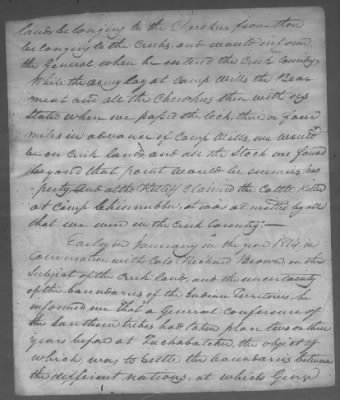 lands belonging to the Cherokees from those
belonging to the Creeks, and would inform
the General when he entered the Creek Country.
While the army lay at Camp Wills the Bear
meat and all the Cherokees then with us
Stated when we passed the three or four
miles in advance of Camp Wills, we would
be on Creek lands, and all the Stock we found
beyond that point would be enemies pro
perty, and altho claimed the Cattle killed
at Camp it was admitted by all
that we were in the Creek Country.—
Early in January in the year 1814 in
Conversation with Colo Richard Brown on the
Subject of the Creek lands, and the uncertainty
of the boundaries of the Indian Territories, he
informed me that a General Conference of
the Southern tribes had taken place two or three
years before at Tuchabatchee, the object of
which was to Settle the boundaries between
the different nations, at which George